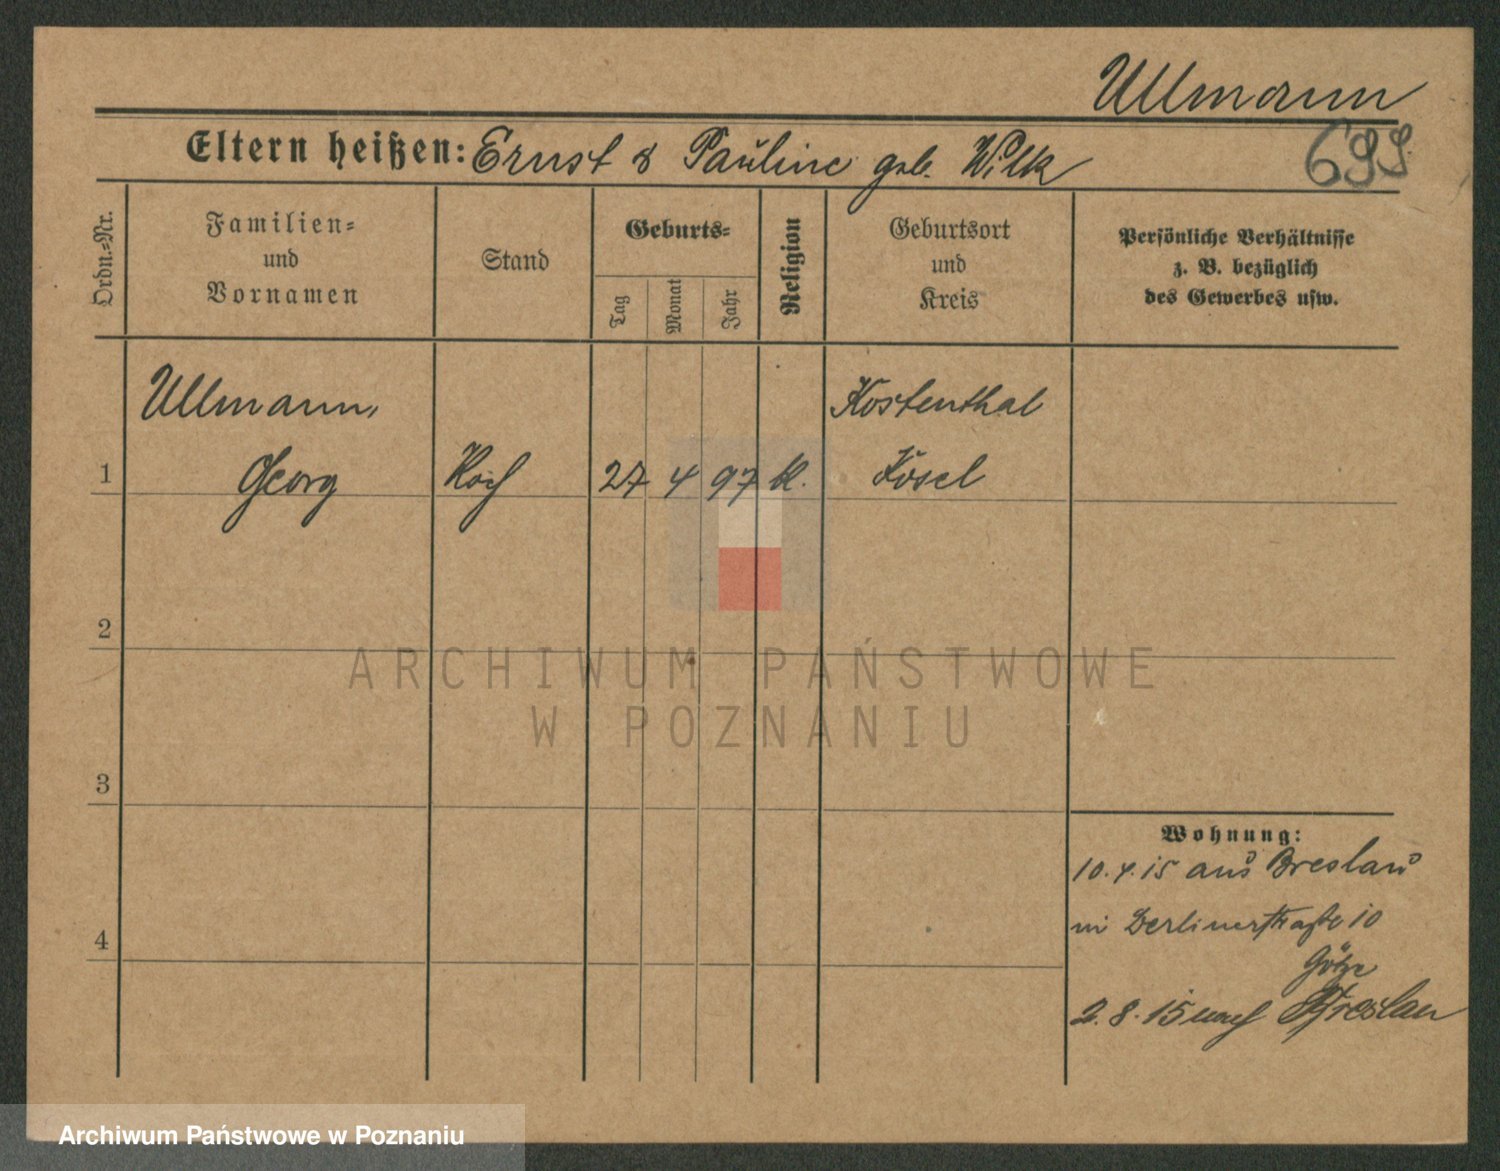 Ullmann
Eltern heißen: Ernst & Pauline geb. Wilk
699
Ordn.=Nr.
Familien=
und
Vornamen
Stand
Geburts=
Tag
Monat
Jahr
Religion
Geburtsort
und
Kreis
Persönliche Verhältnisse
z. B. bezüglich
des Gewerbes usw.
Ullmann,
Kostenthal
1
Georg
Koch
27
4
97
k.
Kosel
2
ARCHIWUM PAŃSTWOWE
W POZNANIU
3
Wohnung:
10.4.15 aus Breslau
in Berlinerstraße 10
4
Götze
2.8.15 nach Breslau
Archiwum Państwowe w Poznaniu